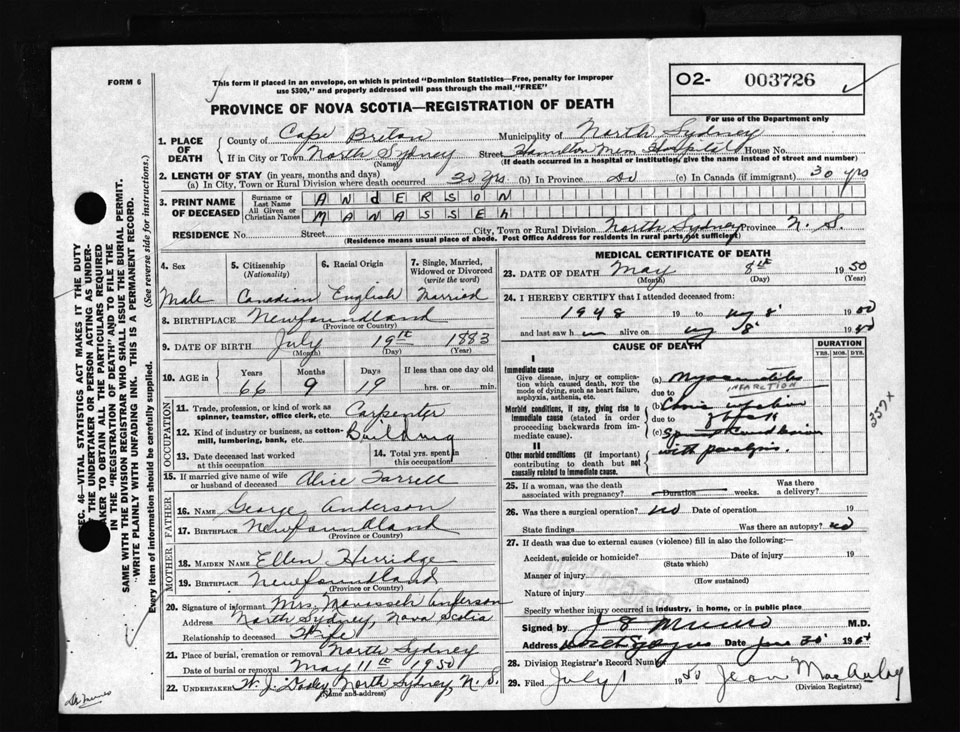 FORM 6
This form if placed in an envelope, on which is printed "Dominion Statistics—Free, penalty for improper
use $300," and properly addressed will pass through the mail "FREE"
O2- 003726
For use of the Department only
PROVINCE OF NOVA SCOTIA—REGISTRATION OF DEATH
1. PLACE OF DEATH
County of Cape Breton Municipality of North Sydney
If in City or Town North Sydney Street Hamilton Mem Hospital House No.
(Name) (If death occurred in a hospital or institution, give the name instead of street and number)
2. LENGTH OF STAY (in years, months and days)
(a) In City, Town or Rural Division where death occurred 30 yrs. (b) In Province Do (c) In Canada (if immigrant) 30 yrs
3. PRINT NAME OF DECEASED
Surname or Last Name ANdERSON
All Given or Christian Names MANASSEH
RESIDENCE No. Street City, Town or Rural Division North Sydney Province N. S.
(Residence means usual place of abode. Post Office Address for residents in rural parts not sufficient)
4. Sex
Male
5. Citizenship
(Nationality)
Canadian
6. Racial Origin
English
7. Single, Married, Widowed or Divorced
(write the word)
Married
8. BIRTHPLACE Newfoundland
(Province or Country)
9. DATE OF BIRTH July 19th 1883
(Month) (Day) (Year)
10. AGE in Years Months Days If less than one day old
66 9 19 hrs. or min.
OCCUPATION
11. Trade, profession, or kind of work as spinner, teamster, office clerk, etc. Carpenter
12. Kind of industry or business, as cotton-mill, lumbering, bank, etc. Building
13. Date deceased last worked at this occupation
14. Total yrs. spent in this occupation
15. If married give name of wife or husband of deceased Alice Farrell
FATHER
16. NAME George Anderson
17. BIRTHPLACE Newfoundland
(Province or Country)
MOTHER
18. MAIDEN NAME Ellen Herridge
19. BIRTHPLACE Newfoundland
(Province or Country)
20. Signature of informant Mrs. Manasseh Anderson
Address North Sydney, Nova Scotia
Relationship to deceased Wife
21. Place of burial, cremation or removal North Sydney
Date of burial or removal May 11th 1950
22. UNDERTAKER W. J. Dooley North Sydney, N. S.
(Name and address)
MEDICAL CERTIFICATE OF DEATH
23. DATE OF DEATH May 8th 1950
(Month) (Day) (Year)
24. I HEREBY CERTIFY that I attended deceased from:
1948 19 to 8 19
and last saw h alive on 8 19
CAUSE OF DEATH
DURATION
YRS. MOS. DYS.
I
Immediate cause
Give disease, injury or complication which caused death, NOT the mode of dying, such as heart failure, asphyxia, asthenia, etc.
(a)
INFARCTION
due to
Morbid conditions, if any, giving rise to immediate cause (stated in order proceeding backwards from immediate cause).
(b)
due to
(c)
II
Other morbid conditions (if important) contributing to death but not causally related to immediate cause.
with paralysis.
25. If a woman, was the death associated with pregnancy? Duration weeks. Was there a delivery?
26. Was there a surgical operation? no Date of operation 19
State findings Was there an autopsy? no
27. If death was due to external causes (violence) fill in also the following:—
Accident, suicide or homicide? Date of injury 19
(State which)
Manner of injury
(How sustained)
Nature of injury
Specify whether injury occurred in industry, in home, or in public place
Signed by M.D.
Address Date June 30 19
28. Division Registrar's Record Number
29. Filed July 1 1950 Jean MacAulay
(Division Registrar)
SEC. 46—VITAL STATISTICS ACT MAKES IT THE DUTY
OF THE UNDERTAKER OR PERSON ACTING AS UNDERTAKER TO OBTAIN ALL THE PARTICULARS REQUIRED
IN THE "REGISTRATION OF DEATH" AND TO FILE THE
SAME WITH THE DIVISION REGISTRAR WHO SHALL ISSUE THE BURIAL PERMIT.
"WRITE PLAINLY WITH UNFADING INK. THIS IS A PERMANENT RECORD.
Every item of information should be carefully supplied. (See reverse side for instructions.)